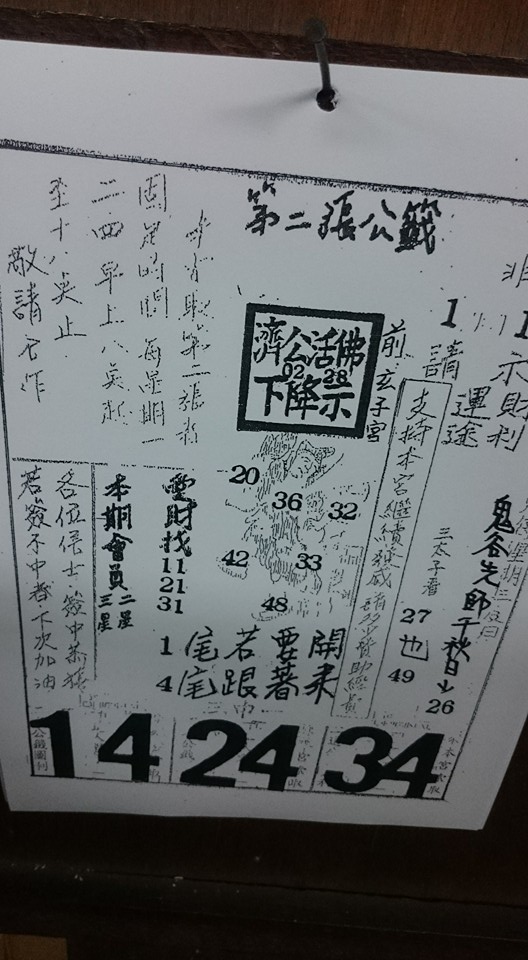 第二張公籤
非
1 1
請示財利
運途
前玄子宮
濟公活佛
02 28
下降示
支持本宮繼續發威請多少贊助經費
鬼谷先師千秋日
三太子看
27也49
26
第二張
固定時間每星期一
二四早上八点起
至十八点止
敬請合作
20
36
32
42
33
48
靈財找
11
21
31
本期會員
二星
三星
各位信士簽中恭禧
若簽不中者下次加油
開來
要著
若跟
尾尾
1
4
14 24 34
公籤圖刊
公籤